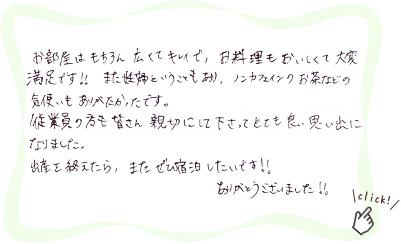 お部屋はもちろん広くてキレイで、お料理もおいしくて大変
満足です!! また妊婦ということもあり、ノンカフェインのお茶などの
気使いもありがたかったです。
従業員の方も皆さん親切にして下さってとても良い思い出に
なりました。
出産を終えたら、またぜひ宿泊したいです!!
ありがとうございました!!
click!